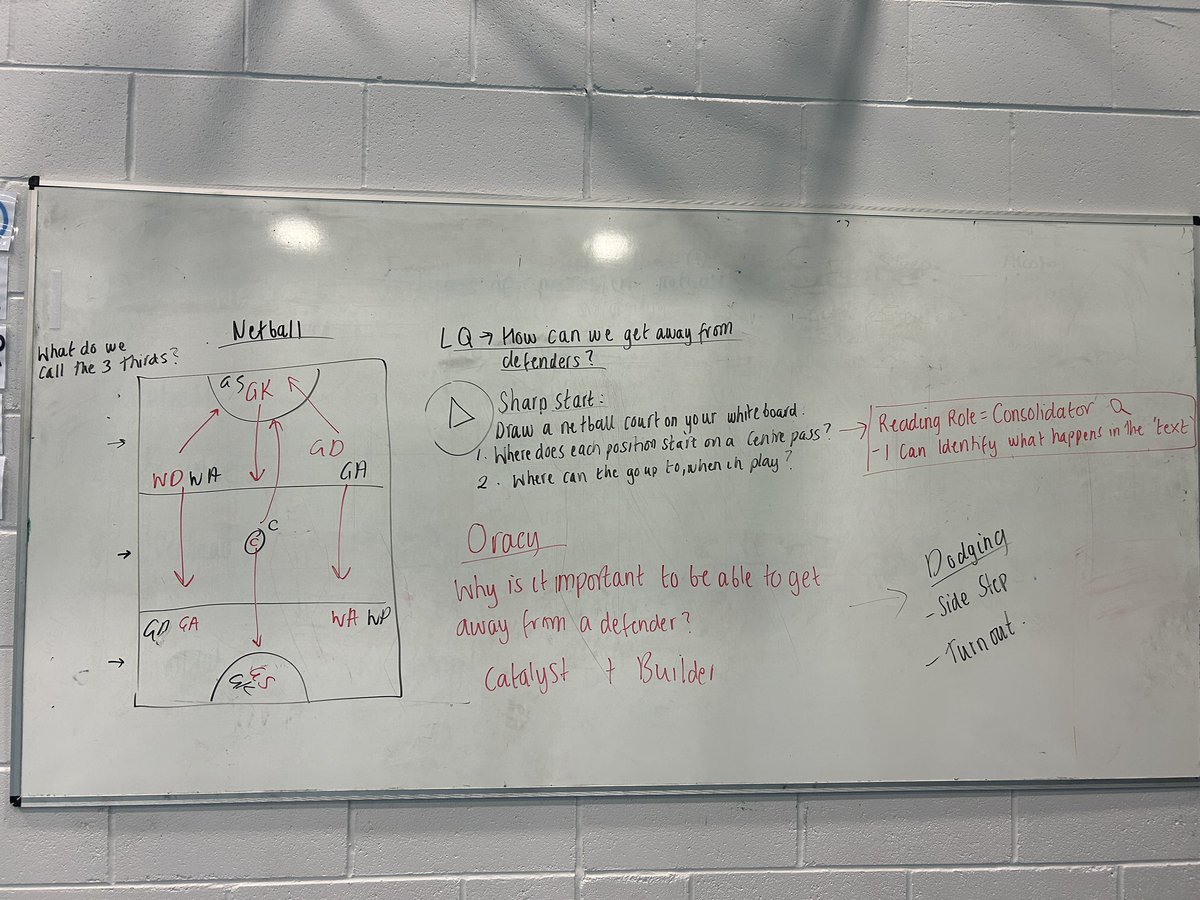 Netball
What do we
call the 3 thirds?
GS GK
GD
WD WA
GA
C
C
GD GA
WA WD
LQ → How can we get away from
defenders?
Sharp Start:
Draw a netball court on your whiteboard.
1. Where does each position start on a centre pass?
2. Where can the go up to, when in play?
Reading Role = Consolidator
- I can identify what happens in the 'text
Oracy
Why is it important to be able to get
away from a defender?
Catalyst + Builder
Dodging
- Side Step
- Turn out.